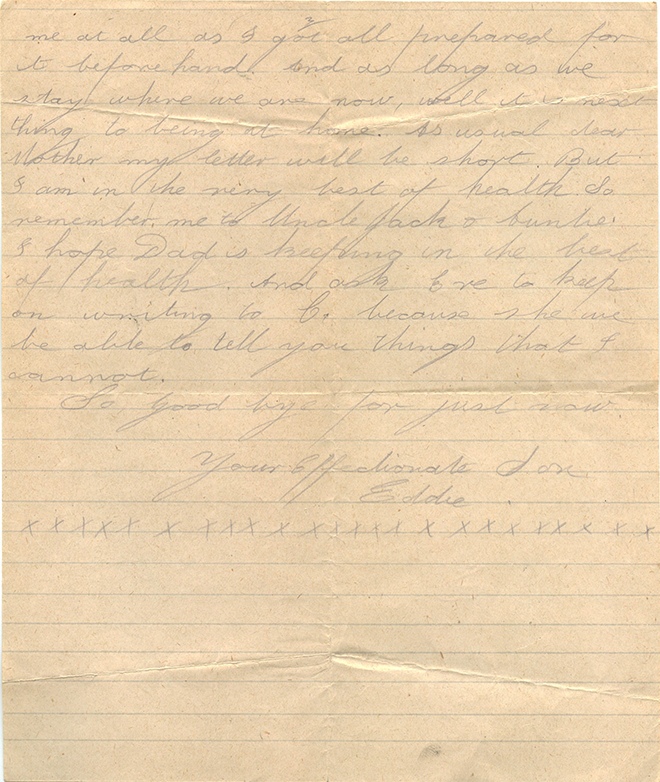 me at all as I got all prepared for
it before hand. And as long as we
stay where we are now, well it is next
thing to being at home. As usual dear
Mother my letter will be short. But
I am in the very best of health. So
remember me to Uncle Jack & Auntie.
I hope Dad is keeping in the best
of health. And ask Eve to keep
on writing to C. because she we
be able to tell you things that I
cannot.
So good bye for just now.
Your Effectionate Son
Eddie.
x x x x x x x x x x x x x x x x x x x x x x x x x